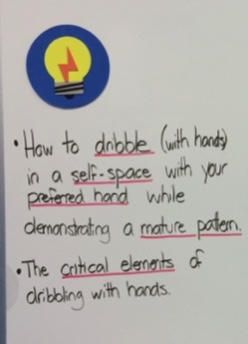 • How to dribble (with hands)
in a self-space with your
preferred hand while
demonstrating a mature pattern.
• The critical elements of
dribbling with hands.